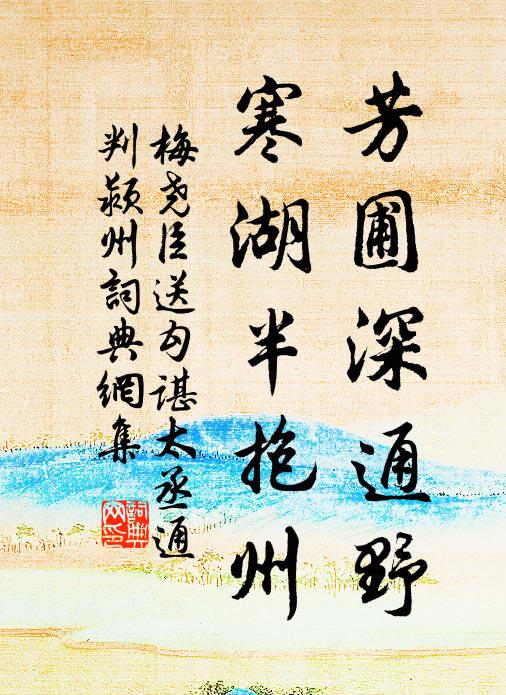 芳圃深通野
寒湖半抱州
梅尧臣送勾諶太丞通
判颍州詞典網集
詞典
网印